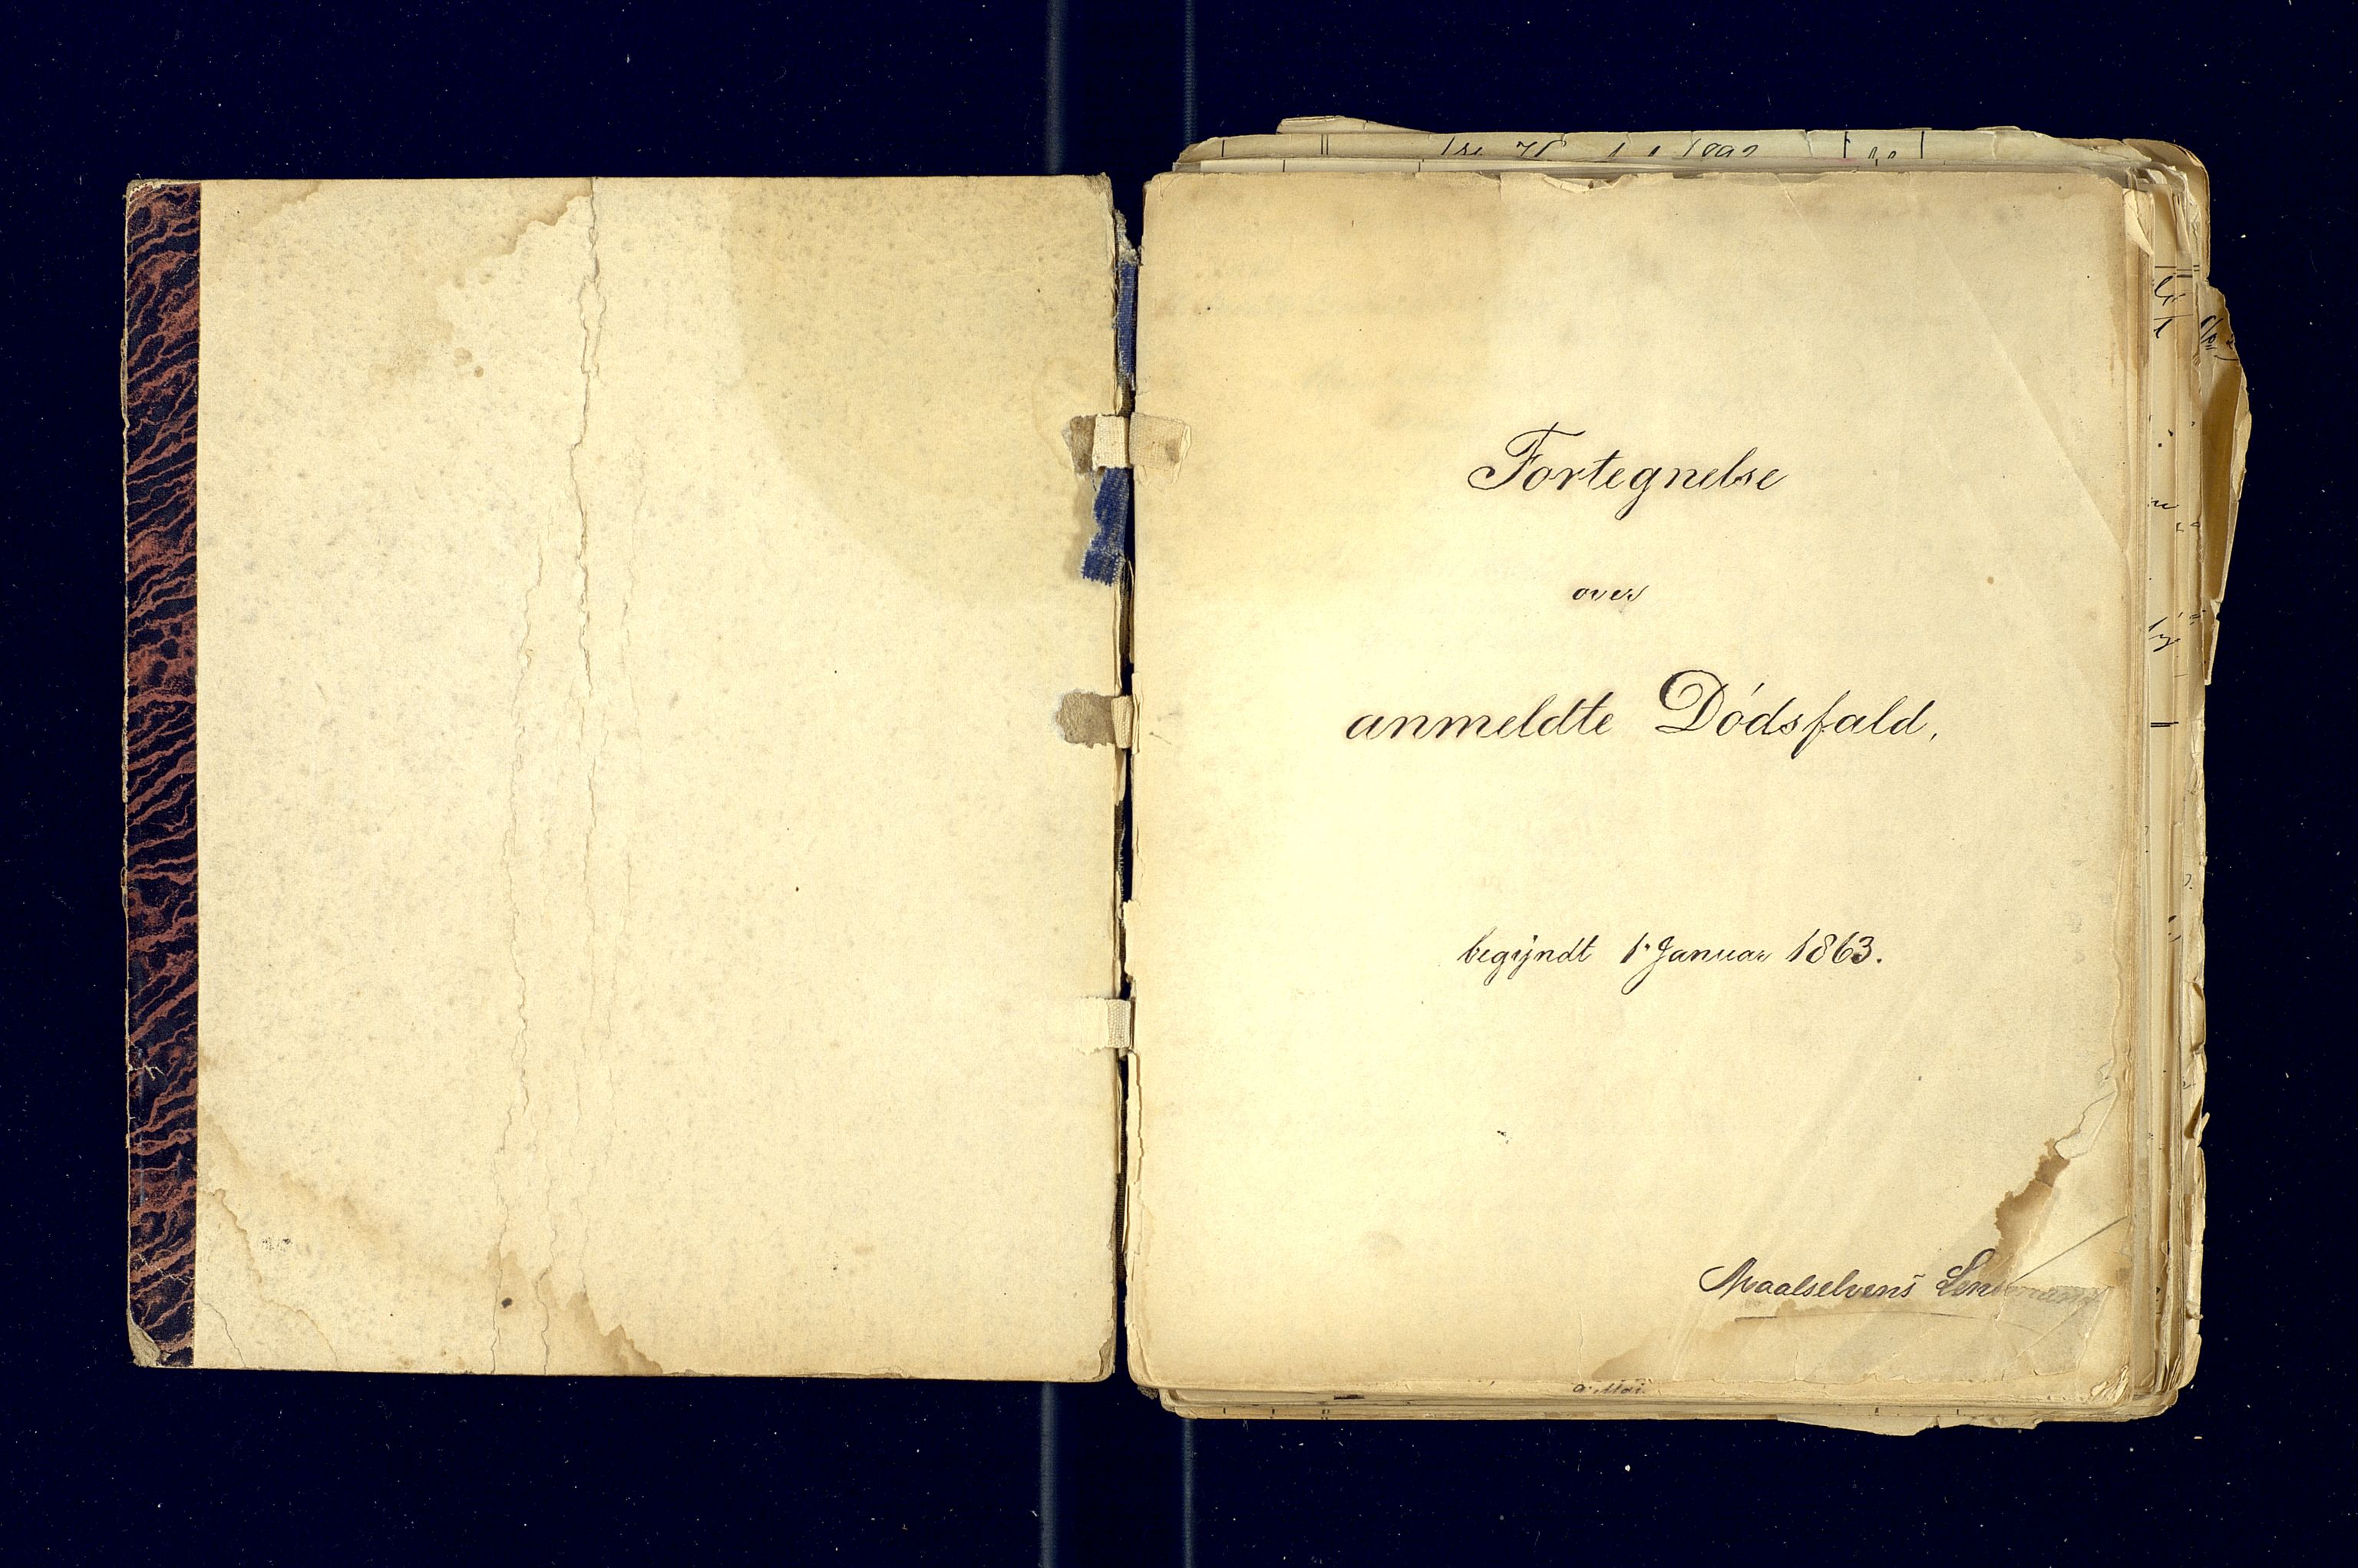 Fortegnelse
over
anmeldte Dødsfald,
begyndt 1. Januar 1863.
Maalselvens